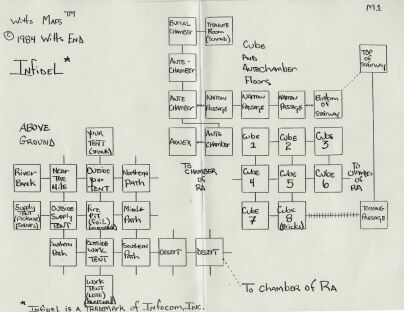 Witts Maps™
M1
© 1984 Witts End
INFIDEL*
BURIAL
CHAMBER
TREASURE
ROOM
(Scarab)
ANTE-
CHAMBER
CUBE
AND
ANTECHAMBER
FLOORS
TOP
OF
STAIRWAY
ANTE
CHAMBER
NARROW
PASSAGE
NARROW
PASSAGE
NARROW
PASSAGE
BOTTOM
OF
STAIRWAY
ABOVE
GROUND
YOUR
TENT
ANNEX
ANTE
CHAMBER
CUBE
1
CUBE
2
CUBE
3
TO
CHAMBER
OF
RA
RIVER
BANK
NEAR
THE
NILE
OUTSIDE
YOUR
TENT
NORTHERN
PATH
CUBE
4
CUBE
5
CUBE
6
TO
CHAMBER
OF
RA
SUPPLY
TENT
OUTSIDE
SUPPLY
TENT
FIRE
PIT
MIDDLE
PATH
CUBE
7
CUBE
8
(Bricks)
TURNING
PASSAGE
SOUTHERN
PATH
OUTSIDE
WORK
TENT
SOUTHERN
PATH
DESERT
DESERT
WORK
TENT
TO CHAMBER OF RA
* INFIDEL IS A TRADEMARK OF INFOCOM, INC.